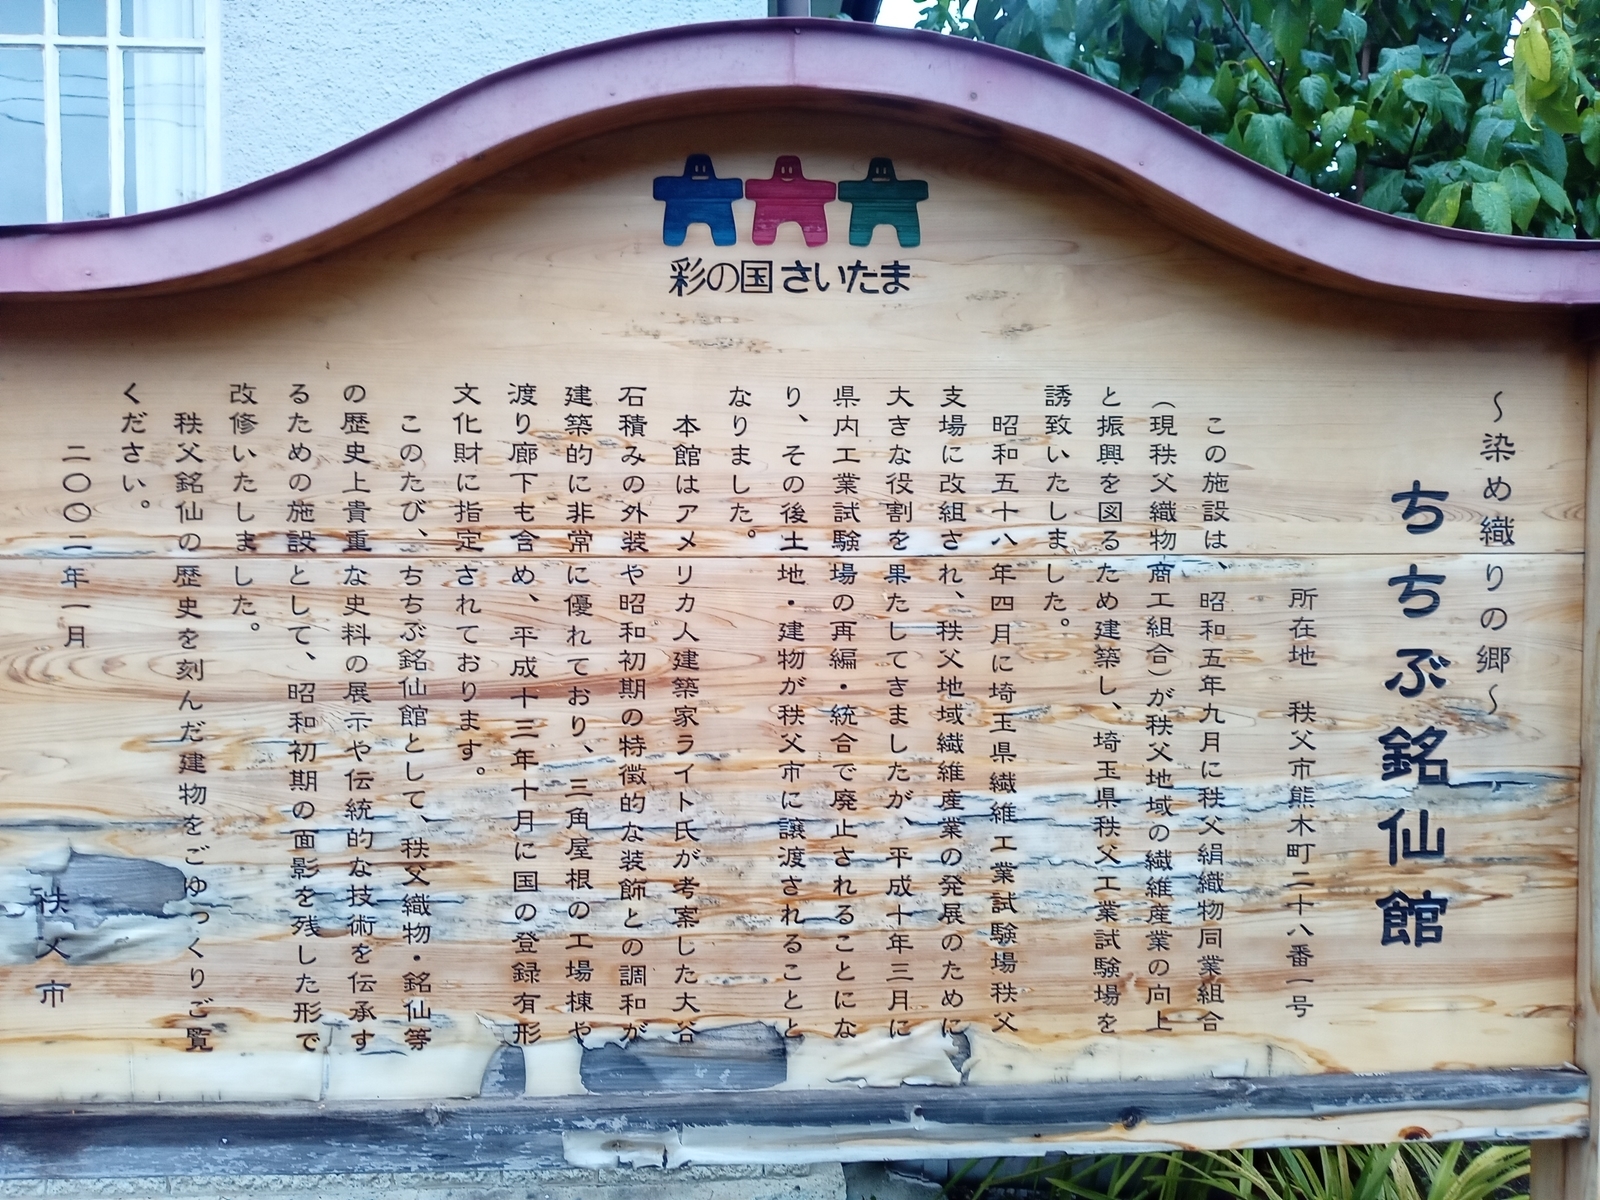 彩の国さいたま
～染め織りの郷～
ちちぶ銘仙館
所在地　秩父市熊木町二十八番一号
この施設は、昭和五年九月に秩父絹織物同業組合
（現秩父織物商工組合）が秩父地域の繊維産業の向上
と振興を図るため建築し、埼玉県秩父工業試験場を
誘致いたしました。
昭和五十八年四月に埼玉県繊維工業試験場秩父
支場に改組され、秩父地域繊維産業の発展のために
大きな役割を果たしてきましたが、平成十年三月に
県内工業試験場の再編・統合で廃止されることにな
り、その後土地・建物が秩父市に譲渡されることと
なりました。
本館はアメリカ人建築家ライト氏が考案した大谷
石積みの外装や昭和初期の特徴的な装飾との調和が
建築的に非常に優れており、三角屋根の工場棟や
渡り廊下も含め、平成十三年十月に国の登録有形
文化財に指定されております。
このたび、ちちぶ銘仙館として、秩父織物・銘仙等
の歴史上貴重な史料の展示や伝統的な技術を伝承す
るための施設として、昭和初期の面影を残した形で
改修いたしました。
秩父銘仙の歴史を刻んだ建物をごゆっくりご覧
ください。
二〇〇二年一月
秩父市